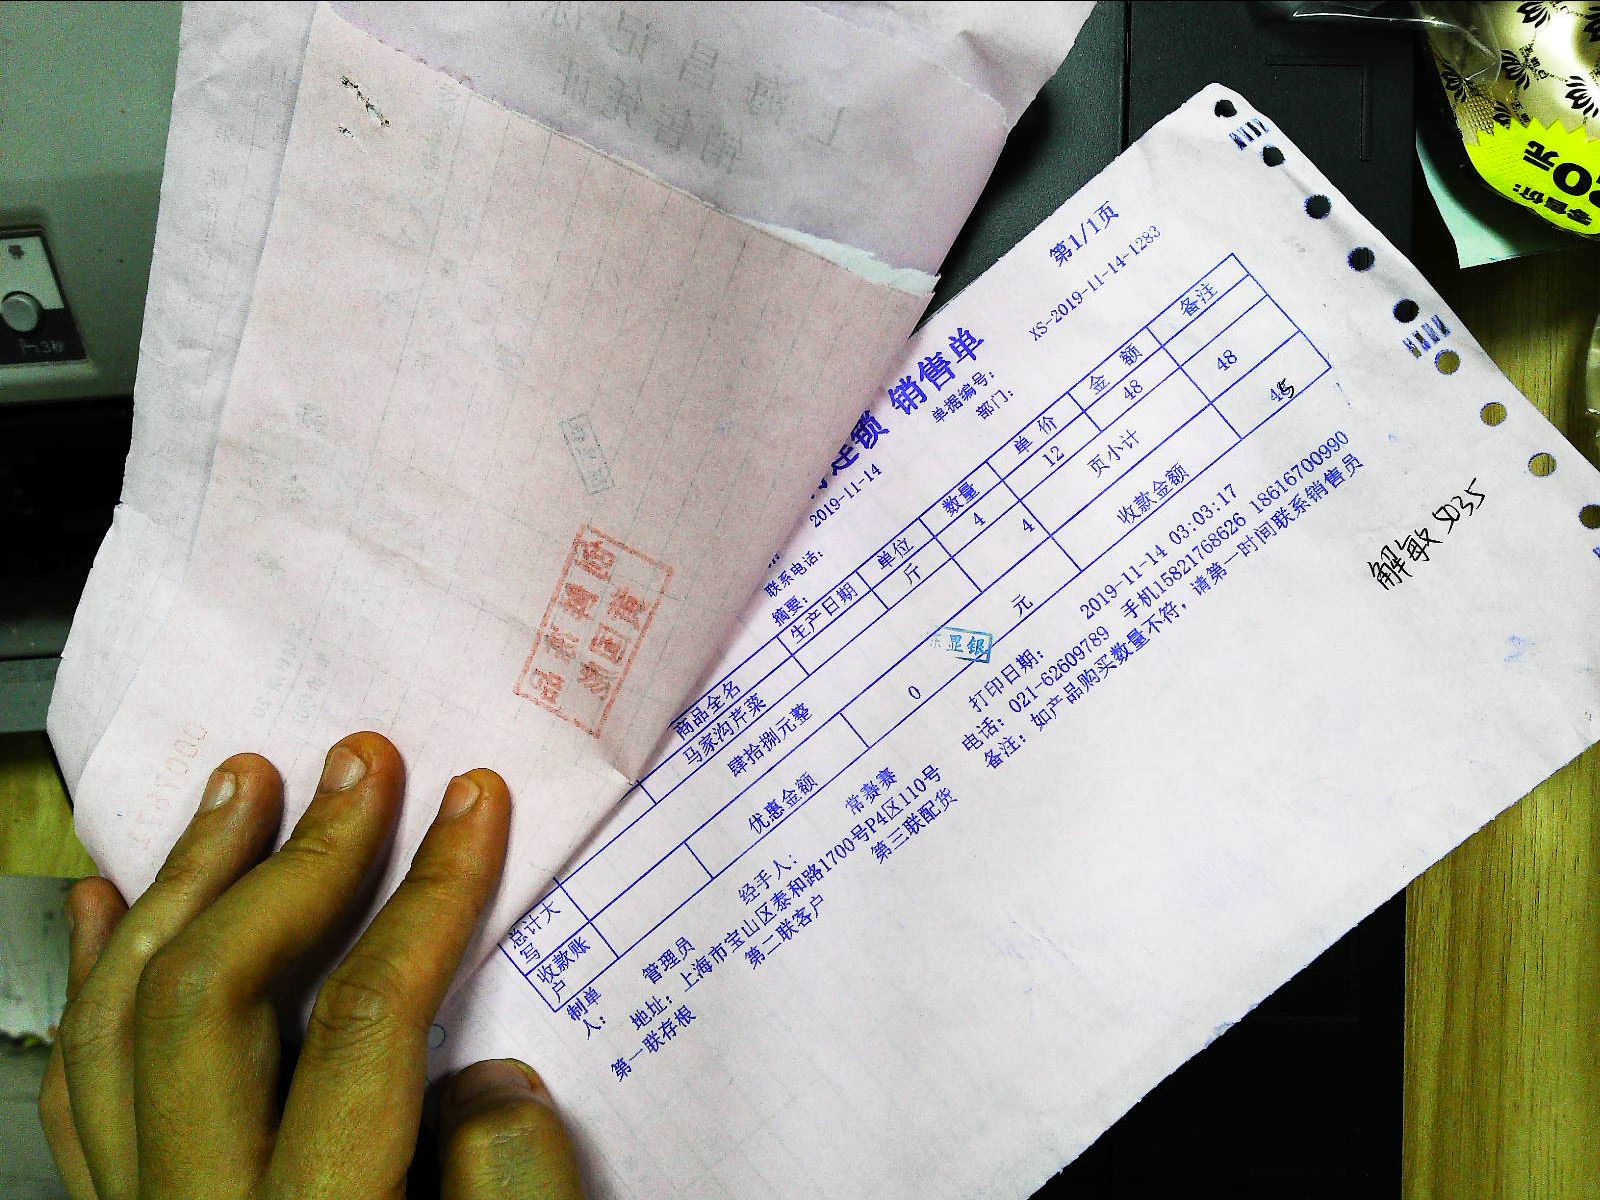 第1/1页
连锁 销售单
单据编号: XS-2019-11-14-1283
2019-11-14
部门:
联系电话:
摘要:
商品全名 生产日期 单位 数量 单价 金 额 备注
马家沟芹菜 斤 4 12 48
4 页小计 48
总计大写 肆拾捌元整 元 收款金额 45
收款账户 优惠金额 0
显银
制单人: 管理员 经手人: 常赛赛 打印日期: 2019-11-14 03:03:17
地址: 上海市宝山区泰和路1700号P4区110号 电话: 021-62609789 手机15821768626 18616700990
第一联存根 第二联客户 第三联配货 备注: 如产品购买数量不符，请第一时间联系销售员
解敏 5035
零售价:
0元